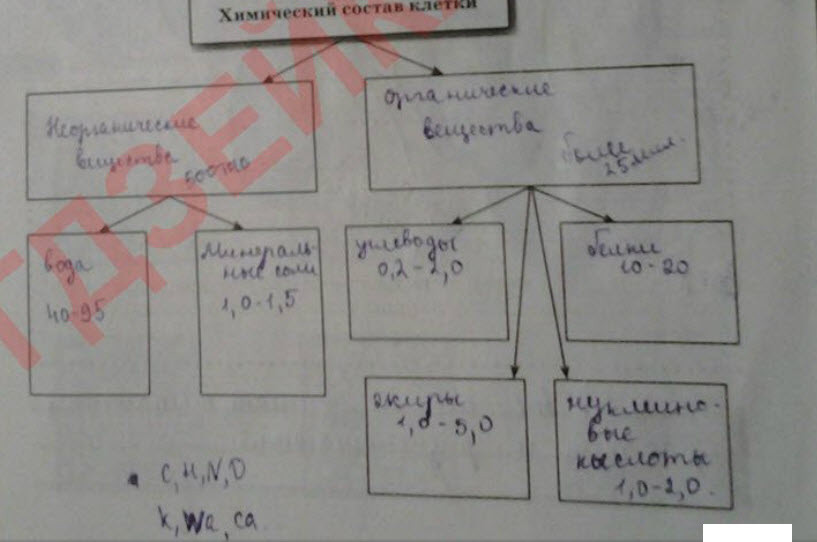 Химический состав клетки
Неорганические
вещества
органические
вещества
более
вода
40-95
Минераль-
ные соли
1,0-1,5
углеводы
0,2-2,0
белки
10-20
жиры
1,0-5,0
нуклеино-
вые
кислоты
1,0-2,0.
C, H, N, O
K, Na, Ca